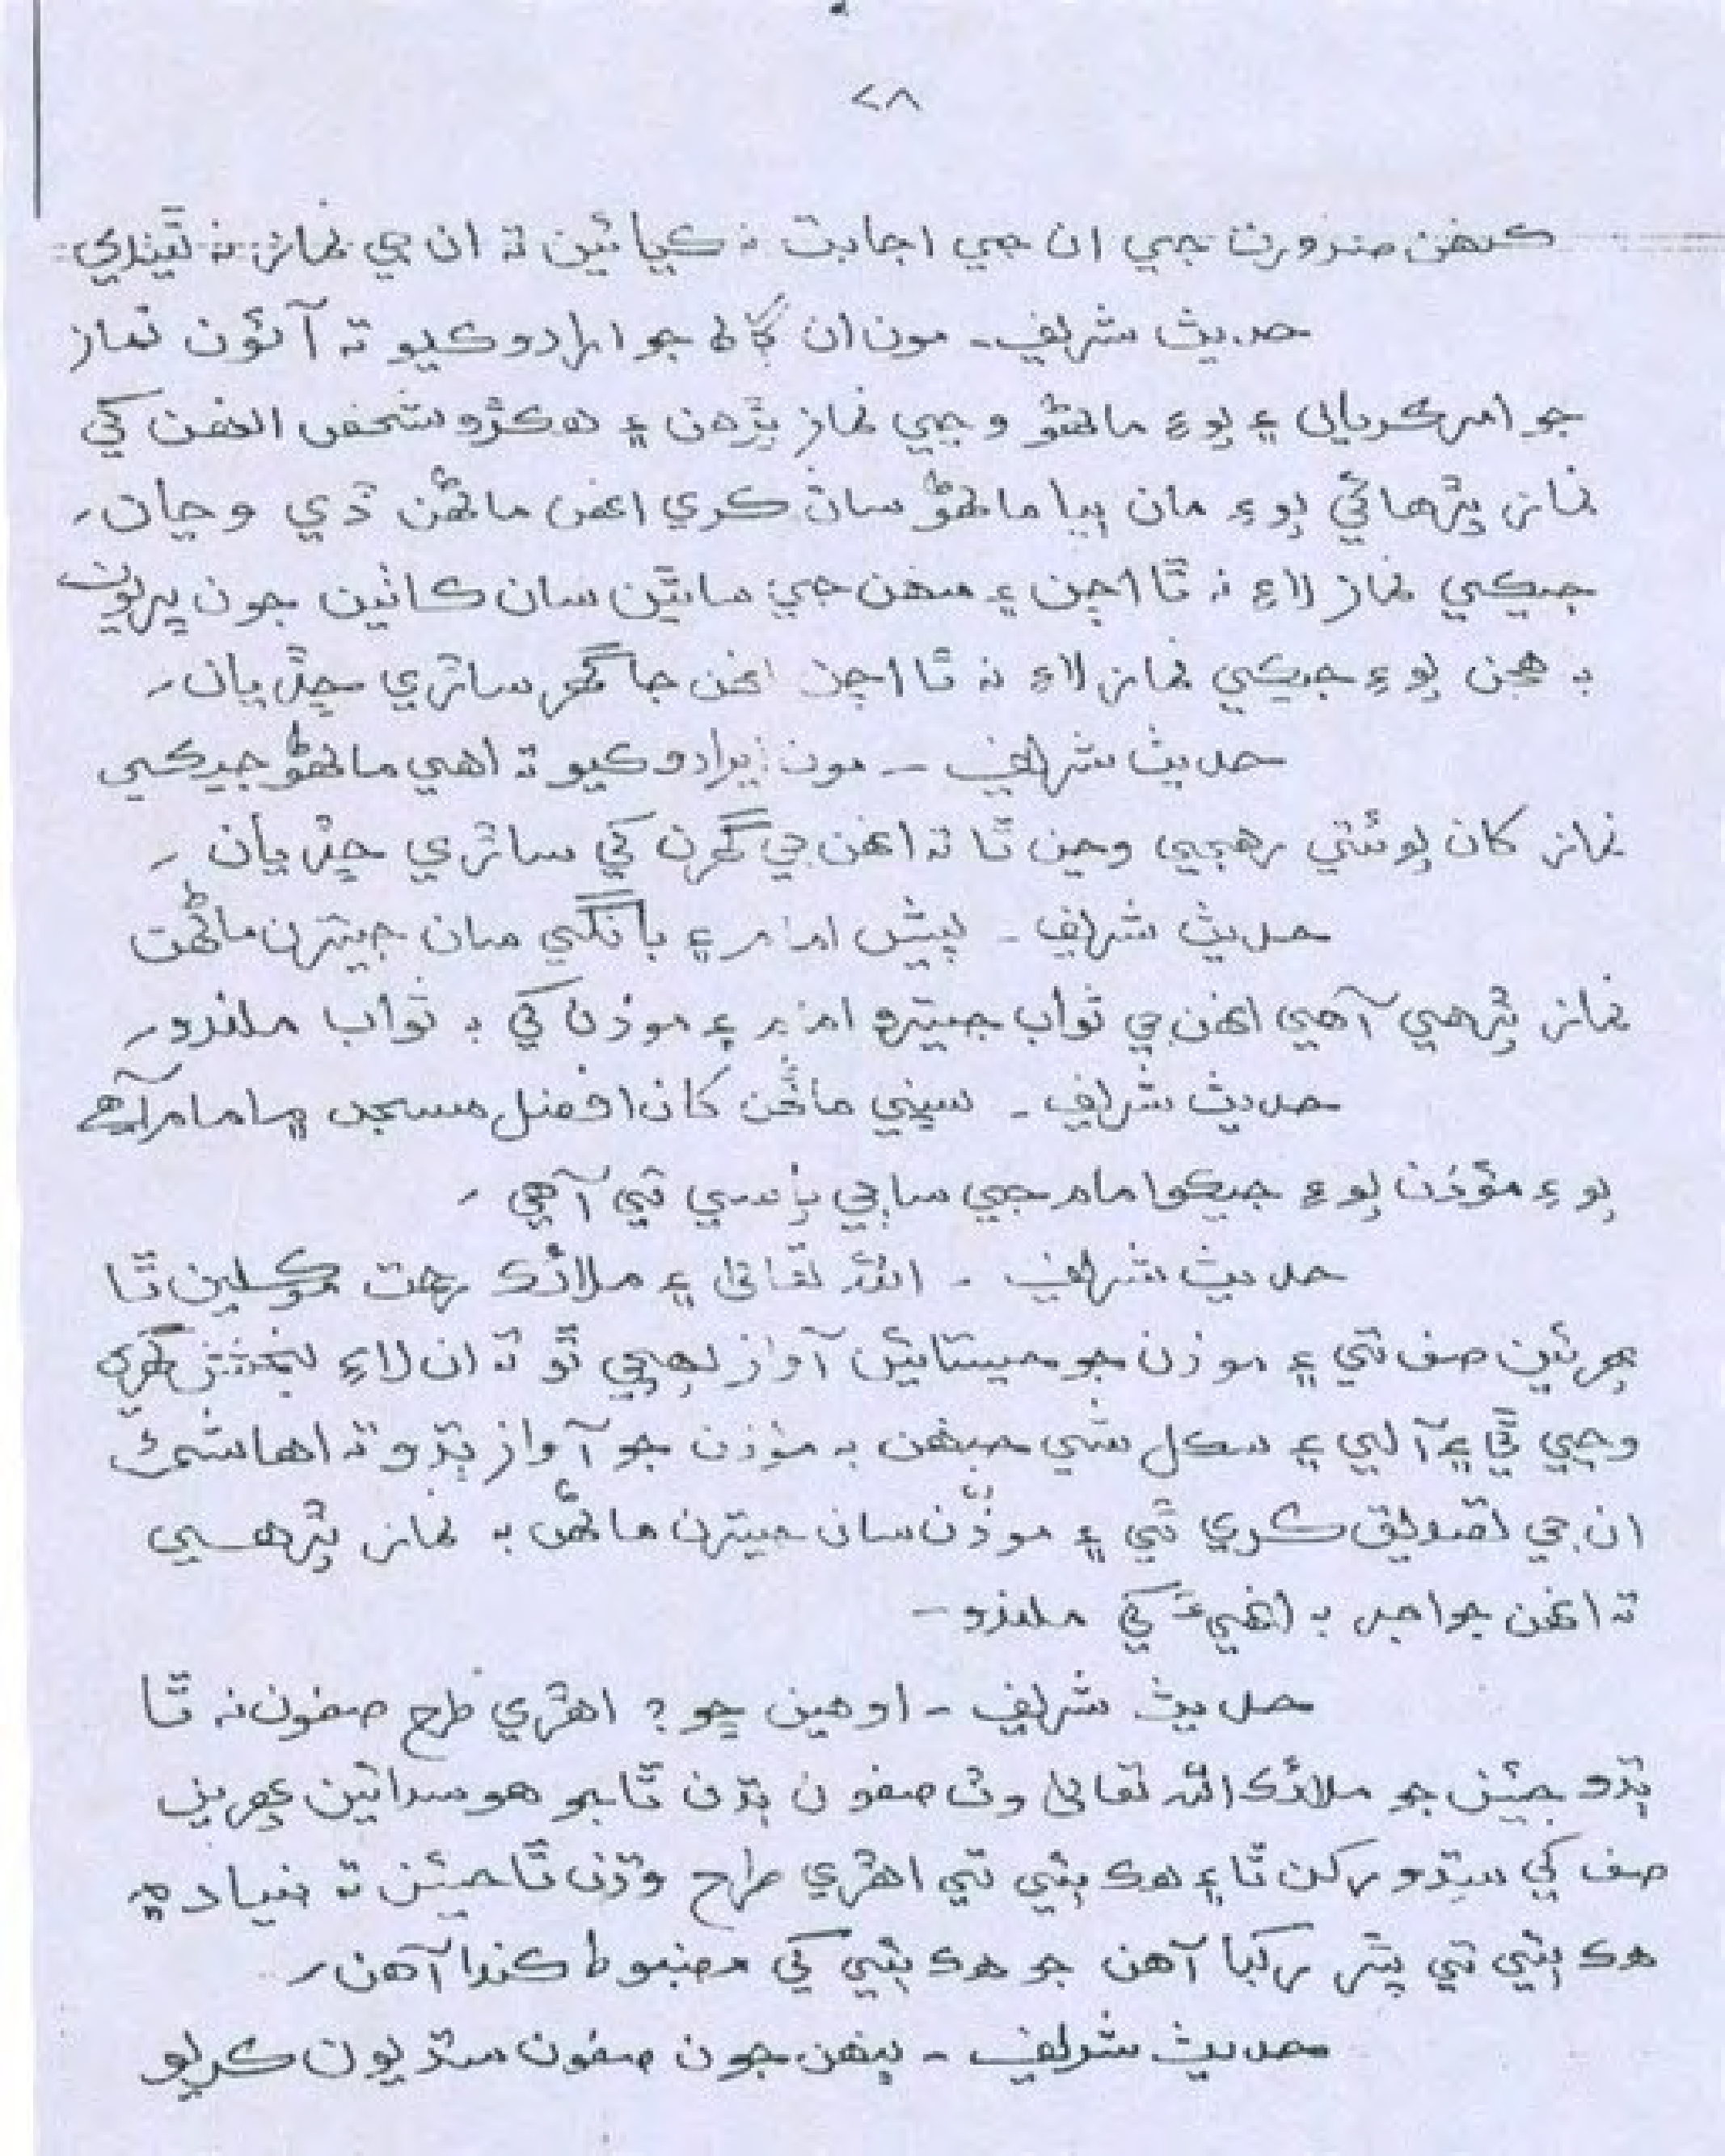 ٢٨
ڪنهن ضرورت جي ان جي اجابت نه ڪيائين ته ان جي نماز نه ٿيندي
حديث شريف ـ مون ان ڳالھ جو ارادو ڪيو ته آئون نماز
جو امر ڪريان ۽ پوءِ ماڻهو وڃي نماز پڙهن ۽ هڪڙو شخص انهن کي
نماز پڙهائي پوءِ مان ٻيا ماڻهو ساڻ ڪري انهن ماڻهن ڏي وڃان۔
جيڪي نماز لاءِ نه ٿا اچن ۽ منهن جي ساٿين سان ڪاٺين جون ڀريون
به هجن پوءِ جيڪي نماز لاءِ نه ٿا اچن انهن جا گهر ساڙي ڇڏيان۔
حديث شريف ـ مون ارادو ڪيو ته اهي ماڻهو جيڪي
نماز کان پوئتي رهجي وڃن ٿا ته انهن جي گهرن کي ساڙي ڇڏيان ۔
حديث شريف ـ پيش امام ۽ بانگي سان جيترن ماڻهن
نماز پڙهي آهي انهن جي ثواب جيترو امام ۽ موذن کي به ثواب ملندو۔
حديث شريف ـ سڀني ماڻهن کان افضل مسجد ۾ امام آهي
پوءِ مؤذن پوءِ جيڪو امام جي ساڄي پاسي تي آهي ۔
حديث شريف ـ الله تعاليٰ ۽ ملائڪ رحمت موڪلين ٿا
پهرئين صف تي ۽ موذن جو جيستائين آواز پهچي ٿو ته ان لاءِ بخشش گهري
وڃي ٿي ۽ آلي ۽ سڪل شي جنهن به مؤذن جو آواز ٻڌو ته اها شيءِ
ان جي تصديق ڪري ٿي ۽ موذن سان جيترن ماڻهن به نماز پڙهي
ته انهن جو اجر به انهيءَ کي ملندو ـ
حديث شريف ـ اوهين ڇو؟ اهڙي طرح صفون نه ٿا
ٻڌو جيئن جو ملائڪ الله تعاليٰ وٽ صفون ٻڌن ٿا جو هو سدائين پهرين
صف کي سڌو رکن ٿا ۽ هڪ ٻئي تي اهڙي طرح وڌن ٿا جيئن ته بنياد ۾
هڪ ٻئي تي پٿر رکبا آهن جو هڪ ٻئي کي مضبوط ڪندا آهن۔
حديث شريف ـ پنهن جون صفون سڌيون ڪريو